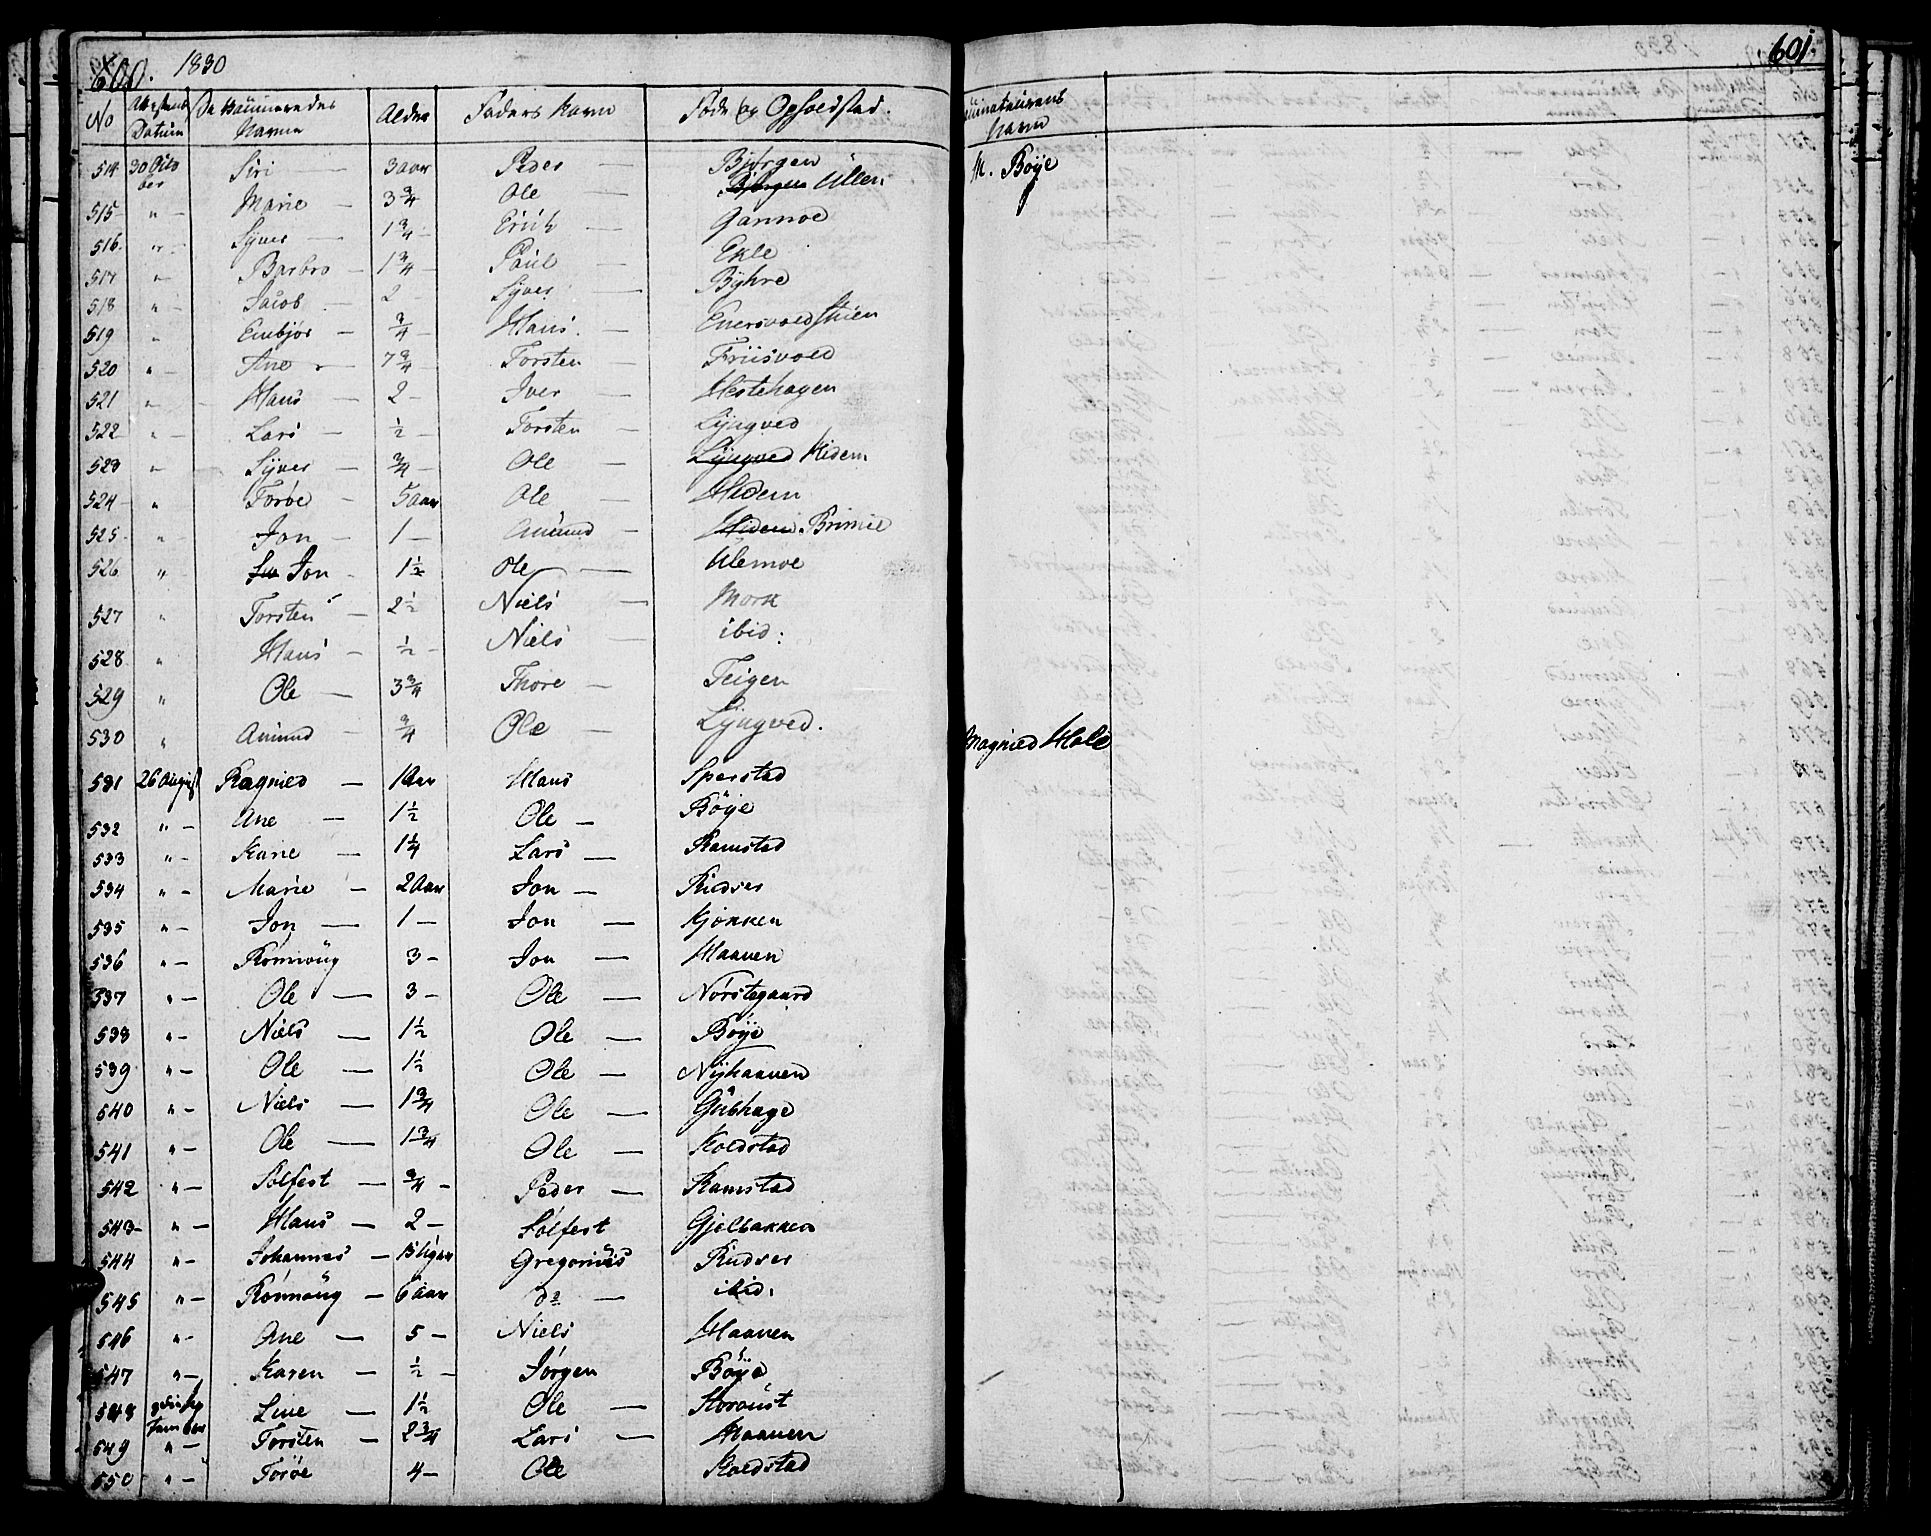 600. 1830
No Attestens Datum De Vaccineredes Navne Alder Faders Navn Føde og Opholdstæd.
514 30 October Siri — 3 aar Peder Bjørgen
515 " — Marie — 3 3/4 Ole — Bjørgen Ullen
516 " — Syver — 1 3/4 — Erich — Garmoe
517 " — Barbro — 1 3/4 — Paul — Ekle
518 " — Jacob — 2 — Syver — Byhre
519 " Embjør — 3/4 — Hans — Enersvoldstuen
520 " — Ane — 7 3/4 — Torsten — Friisvold
521 " — Hans — 2 — Iver — Hestehagen
522 " — Lars — 1/2 — Torsten — Lyngved
523 " — Syver — 3/4 — Ole — Lyngved Hidem
524 " Torøe — 5 aar Ole — Hidem
525 " Jon — 1 — Amund — Hidem Brimie
526 " Jon — 1 1/2 Ole — Ulemoe
527 " Torsten — 2 1/2 Niels — Mork
528 " Hans — 1/2 — Niels — ibid:
529 " Ole — 3 3/4 Thore — Teigen
530 " Amund — 3/4 Ole — Lyngved.
531 26 August Ragnild — 1 Aar Hans Sperstad
532 " — Ane — 1 1/2 Ole — Böÿe
533 " — Karie — 1 1/4 Lars — Ramstad
534 " — Marie — 2 Aar Jon — Rudser
535 " — Jon — 1 — Jon — Kjøkken
536 " — Rønnoug 3 — Jon — Haaven
537 " — Ole — 3 — Ole — Norstegaard
538 " — Niels — 1 1/2 Ole — Böÿe
539 " — Ole — 1 1/2 Ole — Nÿhaaven
540 " — Niels — 1 3/4 Ole — Gubhage
541 " — Ole — 1 3/4 Ole — Koldstad
542 " — Solfest — 3/4 — Peder — Ramstad
543 " — Hans — 2 — Solfest Gjelbakken
544 " — Johannes — 15 Uger Gregorius Rudser
545 " — Rønnoug — 6 aar do — ibid.
546 " — Ane — 5 — Niels Haaven
547 " — Karen — 1/2 — Jørgen Böÿe
548 Line — 1 1/2 Ole — Storöust
549 " — Torsten — 2 3/4 Lars — Haaven
550 " — Torøe 4 — Ole Koldstad
601.
Vaccinateurens Navn
M. Böÿe
Magnild Hole